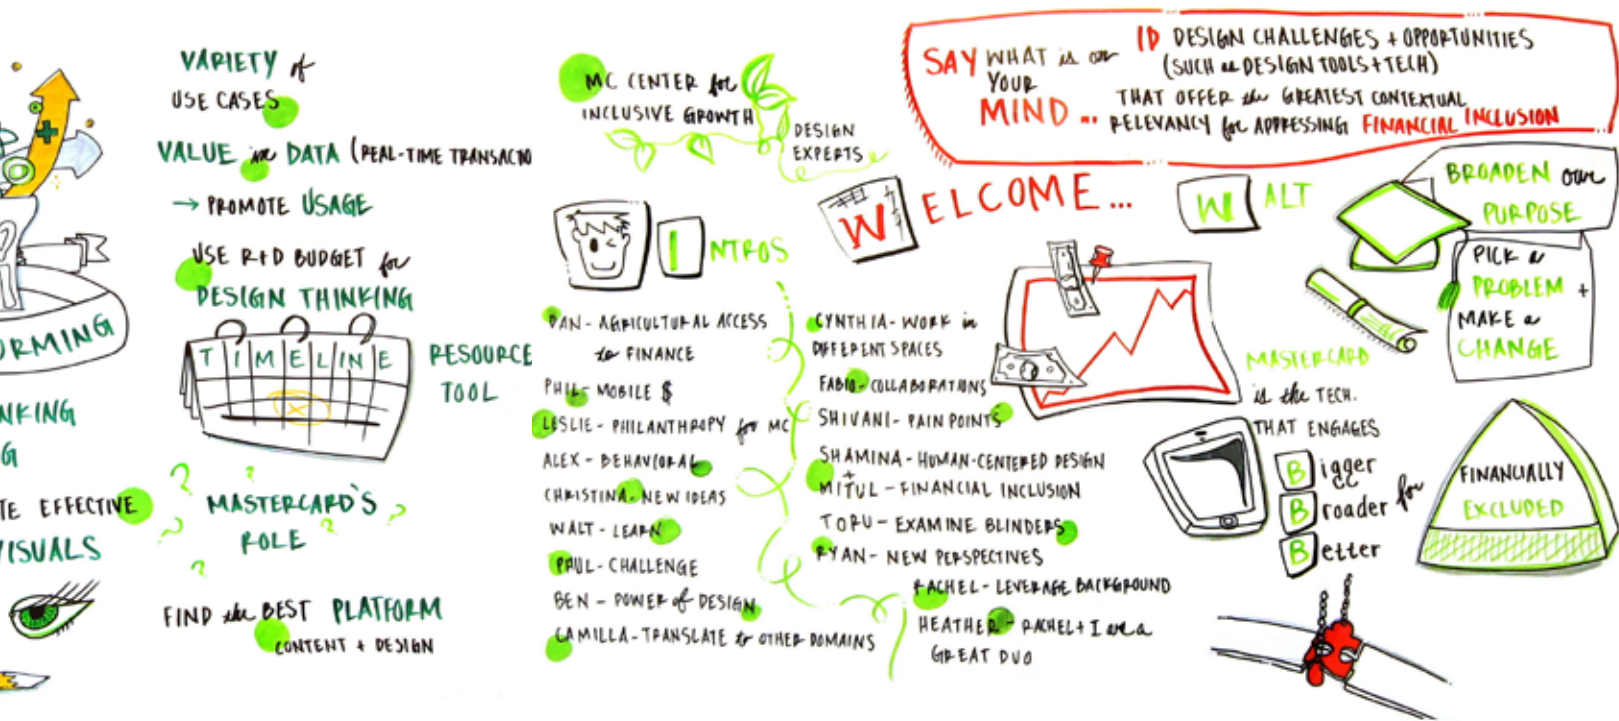 VARIETY of
USE CASES
VALUE in DATA (REAL-TIME TRANSACTIO
→ PROMOTE USAGE
USE R+D BUDGET for
DESIGN THINKING
TIMELINE
RESOURCE
TOOL
ORMING
NKING
G
TE EFFECTIVE
VISUALS
? ? ? ? ? ?
MASTERCARD'S
ROLE
FIND the BEST PLATFORM
CONTENT + DESIGN
MC CENTER for
INCLUSIVE GROWTH
DESIGN
EXPERTS
INTROS
DAN - AGRICULTURAL ACCESS
to FINANCE
PHIL - MOBILE $
LESLIE - PHILANTHROPY for MC
ALEX - BEHAVIORAL
CHRISTINA - NEW IDEAS
WALT - LEARN
PAUL - CHALLENGE
BEN - POWER of DESIGN
CAMILLA - TRANSLATE to OTHER DOMAINS
CYNTHIA - WORK in
DIFFERENT SPACES
FABIO - COLLABORATIONS
SHIVANI - PAIN POINTS
SHAMINA - HUMAN-CENTERED DESIGN
+
MITUL - FINANCIAL INCLUSION
TORU - EXAMINE BLINDERS
RYAN - NEW PERSPECTIVES
RACHEL - LEVERAGE BACKGROUND
HEATHER - RACHEL + I are a
GREAT DUO
SAY WHAT is on
YOUR
MIND ...
ID DESIGN CHALLENGES + OPPORTUNITIES
(SUCH as DESIGN TOOLS + TECH)
THAT OFFER the GREATEST CONTEXTUAL
RELEVANCY for ADDRESSING FINANCIAL INCLUSION
WELCOME...
WALT
BROADEN our
PURPOSE
PICK a
PROBLEM +
MAKE a
CHANGE
MASTERCARD
is the TECH.
THAT ENGAGES
Bigger
Broader for
Better
FINANCIALLY
EXCLUDED